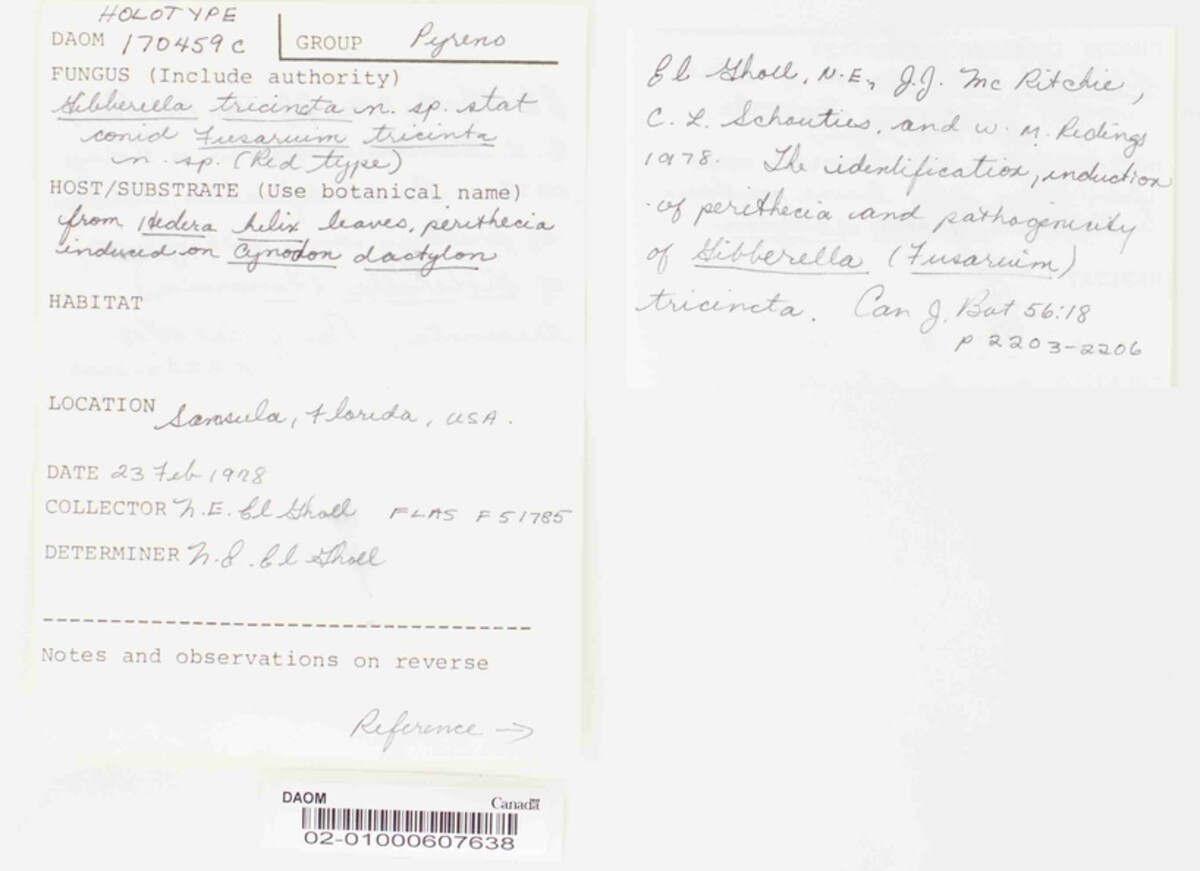 HOLOTYPE
DAOM 170459c GROUP Pyreno
FUNGUS (Include authority)
Gibberella tricincta n. sp. stat
conid Fusarium tricinta
n. sp. (Red type)
HOST/SUBSTRATE (Use botanical name)
from Hedera helix leaves, perithecia
induced on Cynodon dactylon
HABITAT
LOCATION Samsula, Florida, USA.
DATE 23 Feb 1978
COLLECTOR N.E. El Gholl FLAS F51785
DETERMINER N.E. El Gholl
Notes and observations on reverse
Reference →
DAOM Canada
02-01000607638
El Gholl, N.E., J.J. McRitchie,
C. L. Schouties, and W. M. Ridings
1978. The identification, induction
of perithecia and pathogenicity
of Gibberella (Fusarium)
tricincta. Can J. Bot 56:18
p 2203-2206